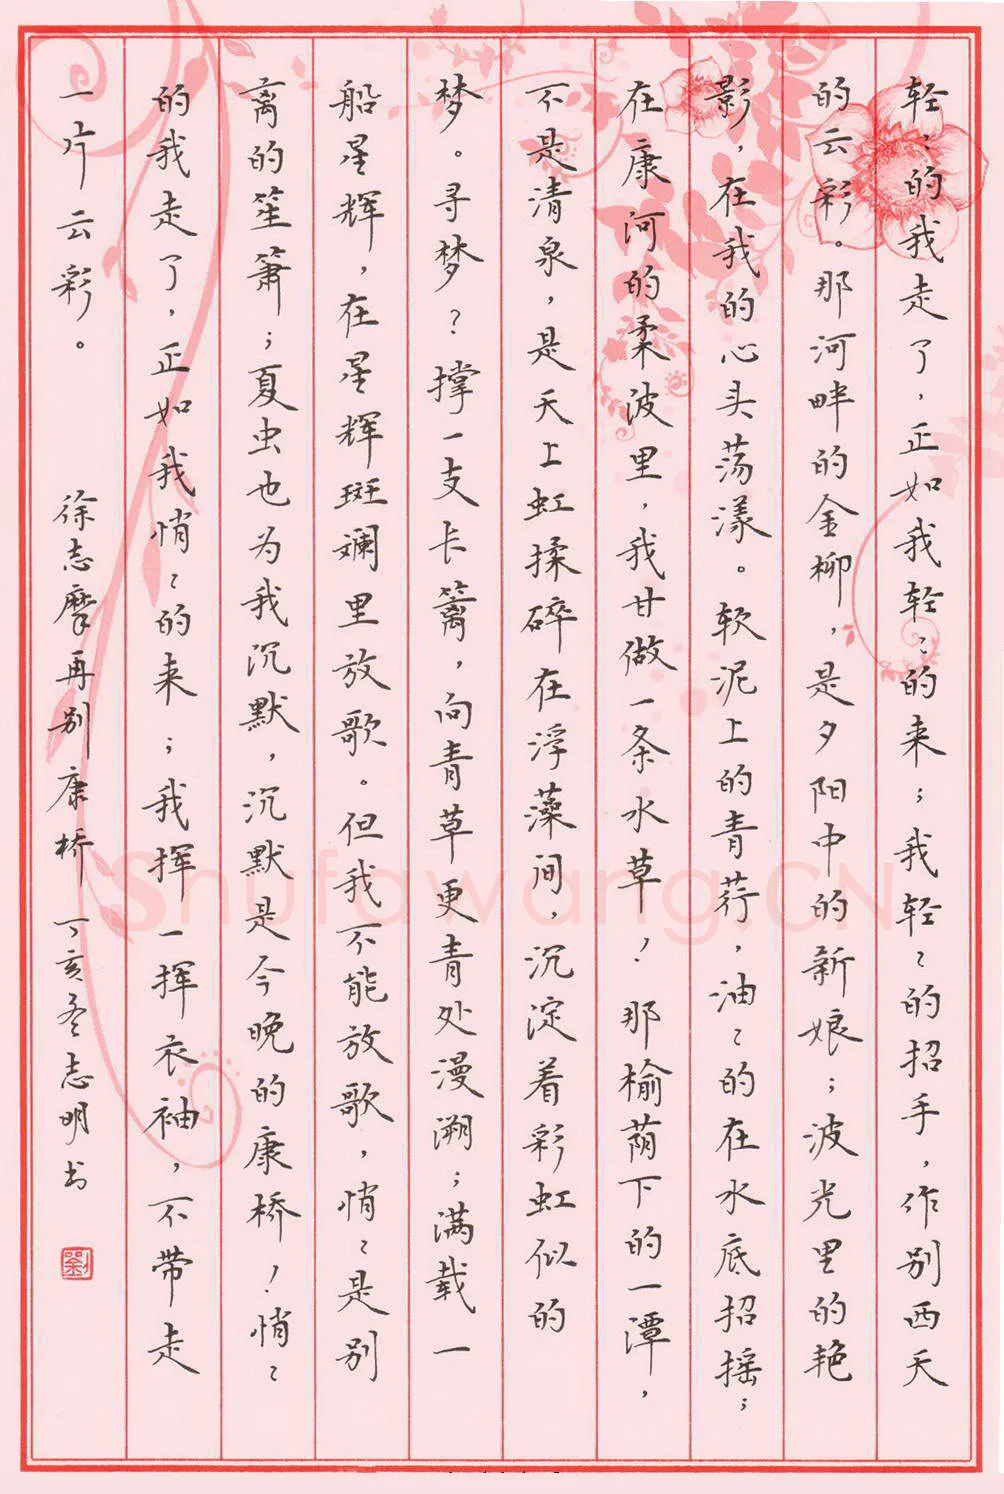 轻〻的我走了，正如我轻〻的来；我轻〻的招手，作别西天
的云彩。那河畔的金柳，是夕阳中的新娘；波光里的艳
影，在我的心头荡漾。软泥上的青荇，油〻的在水底招摇；
在康河的柔波里，我甘做一条水草！那榆荫下的一潭，
不是清泉，是天上虹揉碎在浮藻间，沉淀着彩虹似的
梦。寻梦？撑一支长篙，向青草更青处漫溯；满载一
船星辉，在星辉斑斓里放歌。但我不能放歌，悄〻是别
离的笙箫；夏虫也为我沉默，沉默是今晚的康桥！悄〻
的我走了，正如我悄〻的来；我挥一挥衣袖，不带走
一片云彩。 徐志摩再别康桥 丁亥冬志明书
劉
Shufawang.CN